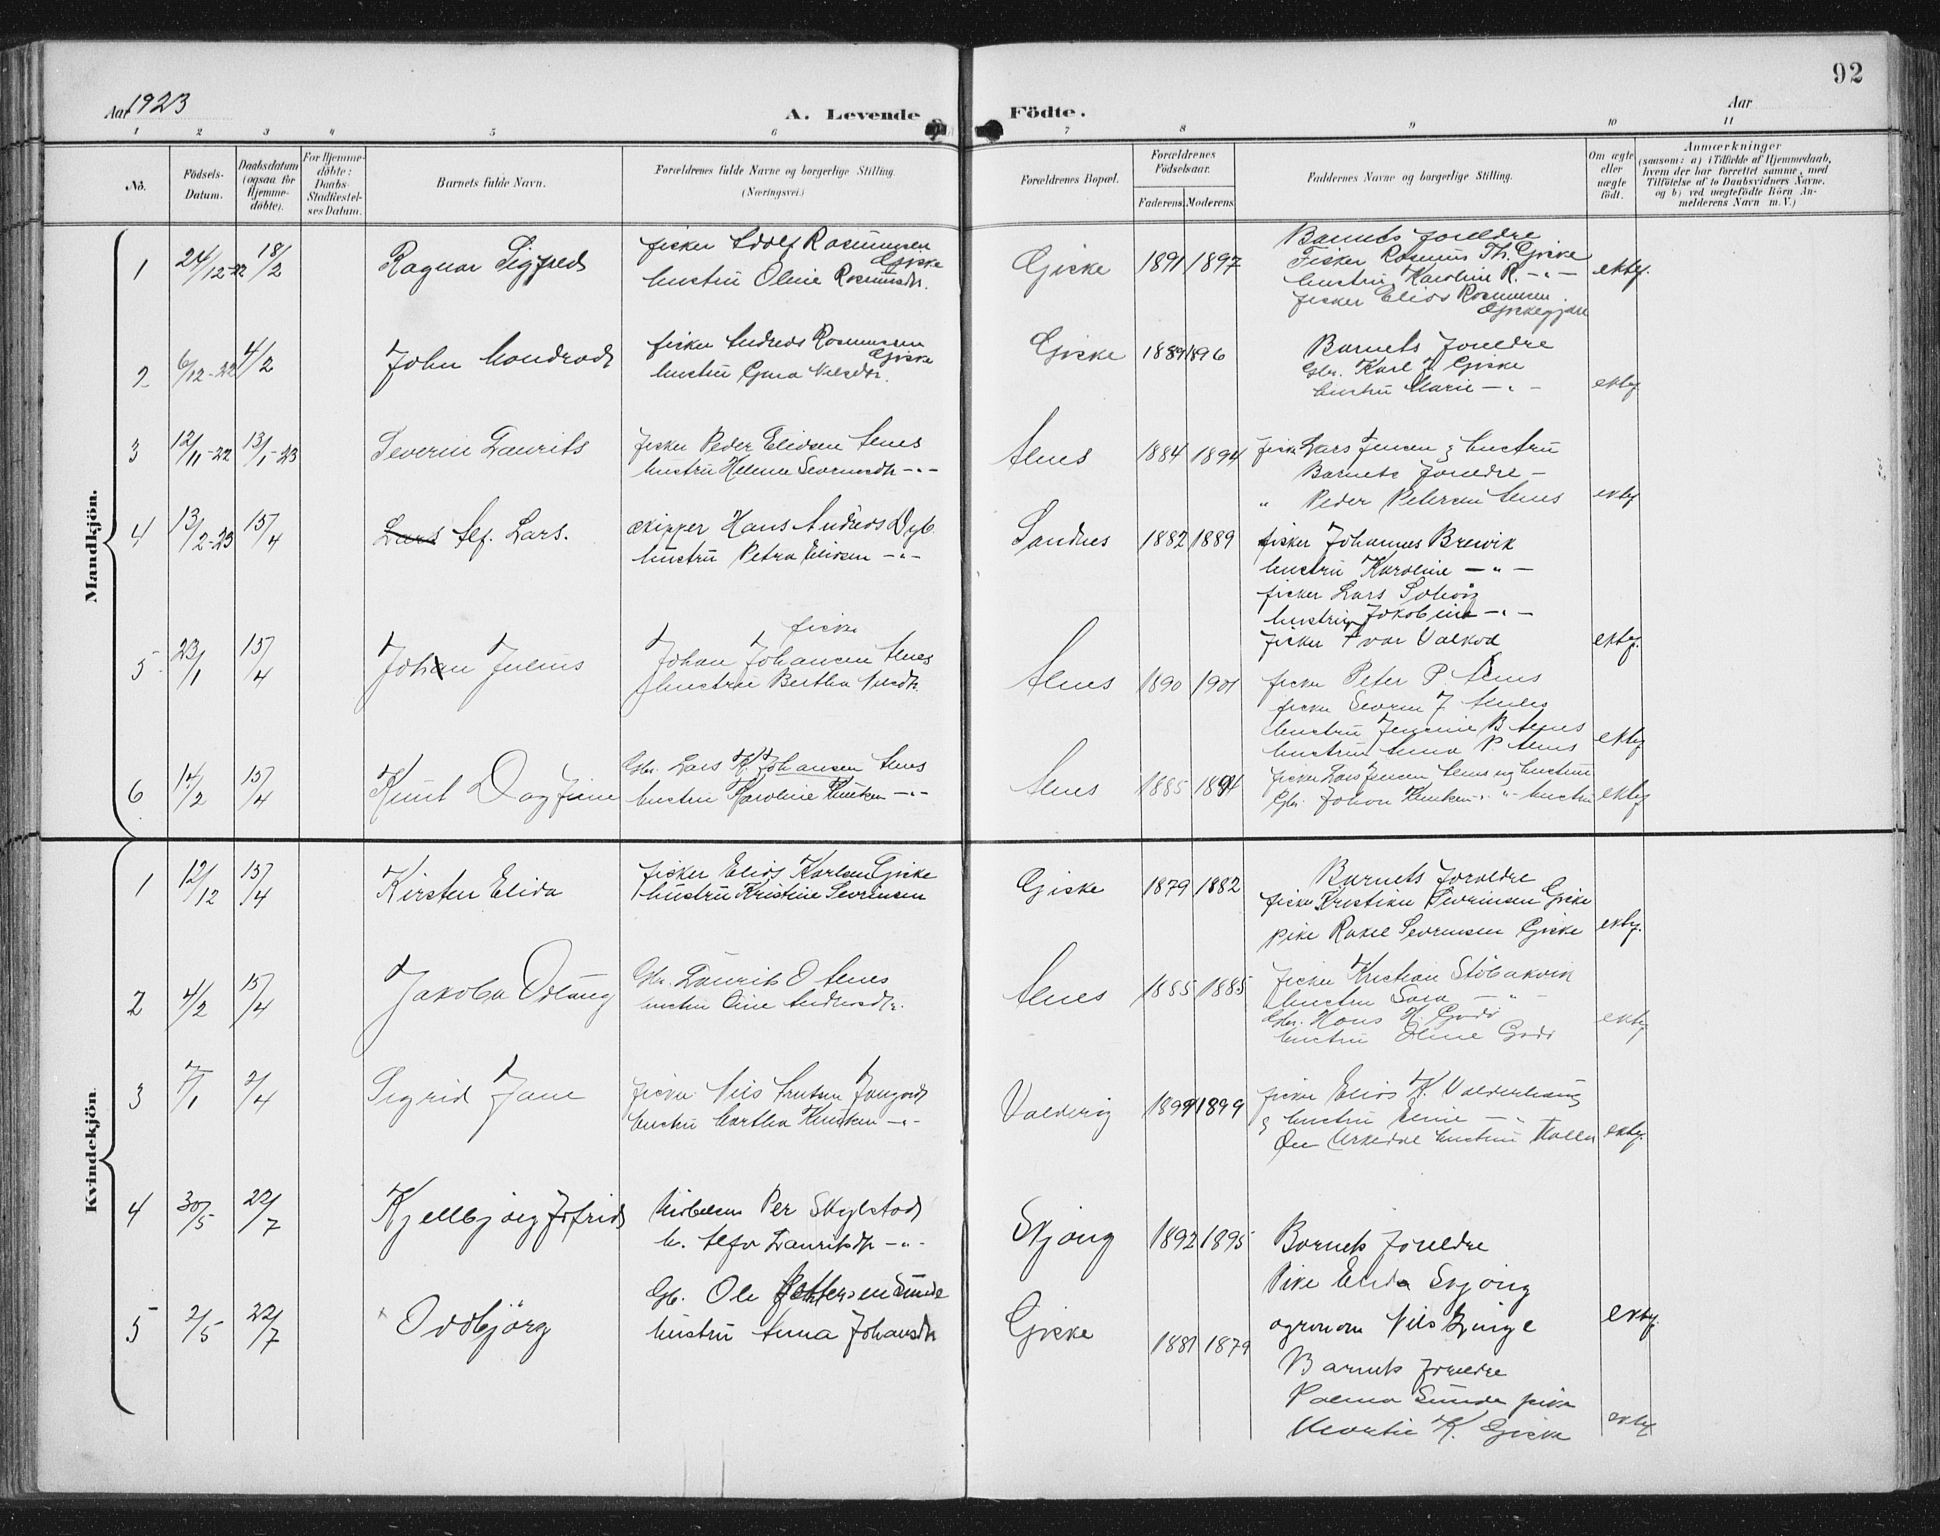 92
Aar 1923
A. Levende Födte.
Aar
1 2 3 4 5 6 7 8 9 10 11
No.
Födsels-Datum.
Daabsdatum (ogsaa for Hjemme-döbte).
For Hjemme-döbte: Daabs-Stadfæstel-ses Datum.
Barnets fulde Navn.
Forældrenes fulde Navne og borgerlige Stilling. (Næringsvei.)
Forældrenes Bopæl.
Forældrenes Födselsaar.
Faderens. Moderens.
Faddernes Navne og borgerlige Stilling.
Om ægte eller uægte födt.
Anmærkninger
(saasom: a) i Tilfælde af Hjemmedaab, hvem der har forrettet samme, med Tilföielse af to Daabsvidners Navne, og b) ved uægtefödte Börn An-melderens Navn m. V.)
Mandkjön.
1 24/12-22 18/2 Ragnar Sigfred
fisker Adolf Rasmussen Giske
hustru Oline Rasmusdtr.
Giske 1891 1897
Barnets foreldre
Fisker Rasmus Th. Giske
hustru Karoline R. -"-
fisker Elias Rasmussen
ektef.
2 6/12-22 4/2 John
fisker Andreas Rasmussen Giske
hustru Gina Nilsdtr.
Giske 1889 1896
Barnets foreldre
Gbr. Karl J. Giske
hustru Marie -"-
ektef.
3 12/11-22 13/1-23 Severin Laurits
fisker Peder Eliasen Alnes
hustru Helene Sevrinsdtr -"-
Alnes 1884 1894
fisker Lars Jensen & hustru
Barnets foreldre -
" Peder Petersen Alnes
ektef
4 13/2-23 15/4 Lars Alf. Lars.
skipper Hans Andreas Dyb
hustru Petra Eliasen -"-
Sandnes 1882 1889
fisker Johannes Breivik
hustru Karoline -"-
fisker Lars
hustru Jakobine -"-
fisker Ivar
ektef.
5 23/1 15/4 Johan Julius
fisker
Johan Johansen Alnes
hustru Bertha Nilsdtr.
Alnes 1890 1901
fisker Peter P. Alnes
fisker Severin J. Alnes
hustru Jensine B. Alnes
hustru Anna P. Alnes
ektef
6 14/2 15/4 Knut Dagfinn
Gbr. Lars K. Johansen Alnes
hustru Karoline Knutsen -"-
Alnes 1885 1894
fisker Lars Jensen Alnes og hustru
Gbr. Johan Knutsen -"- hustru
ektef
Kvindekjön.
1 12/12 15/4 Kirsten Elida
fisker Elias Karlsen Giske
hustru Kristine Sevrinsen
Giske 1879 1882
Barnets foreldre
fisker Kristian Sevrinsen Giske
pike Rakel Sevrinsen Giske
ektef.
2 4/2 15/4 Jakoba Odlaug
Gbr. Laurits O Alnes
hustru Oline Andreasdtr.
Alnes 1885 1885
fisker Kristian Stöbakvik
hustru Sara -"-
Gbr. Hans H. Godö
hustru Oline Godö
ektef
3 7/1 2/4 Sigrid Jane
fisker Nils Knutsen
hustru Martha Knutsen -"-
Valderöy 1899 1899
fisker Elias K. Valderhaug
& hustru -"-
ektef.
4 30/5 22/7 Kjellbjörg Jofrid
Per Skylstad
h. Alfa Lauritsdtr -"-
Skjong 1892 1895
Barnets foreldre
Pike Elida Skjong
agronom Nils
ektef.
5 2/5 22/7 Oddbjörg
Gb. Ole Pettersen Sunde
hustru Anna Johansdtr
Giske 1881 1879
Barnets foreldre
Palma Sunde pike
K. Giske
ektef